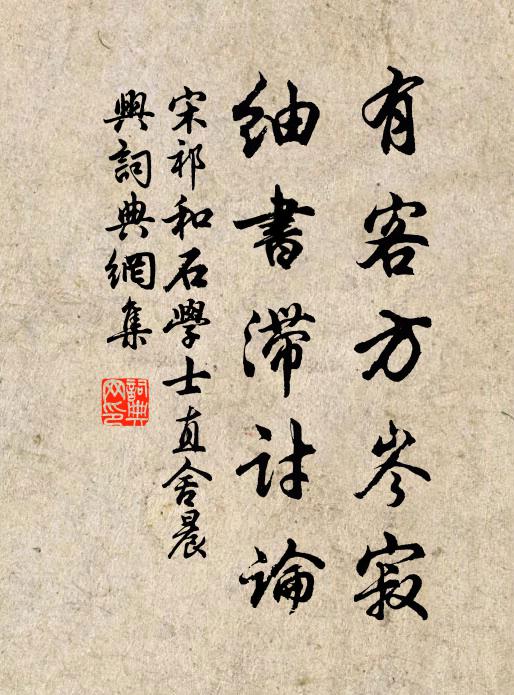 有客方岑寂
紬書滯討論
宋祁和石學士直舍晨
興詞典網集
詞典
网印